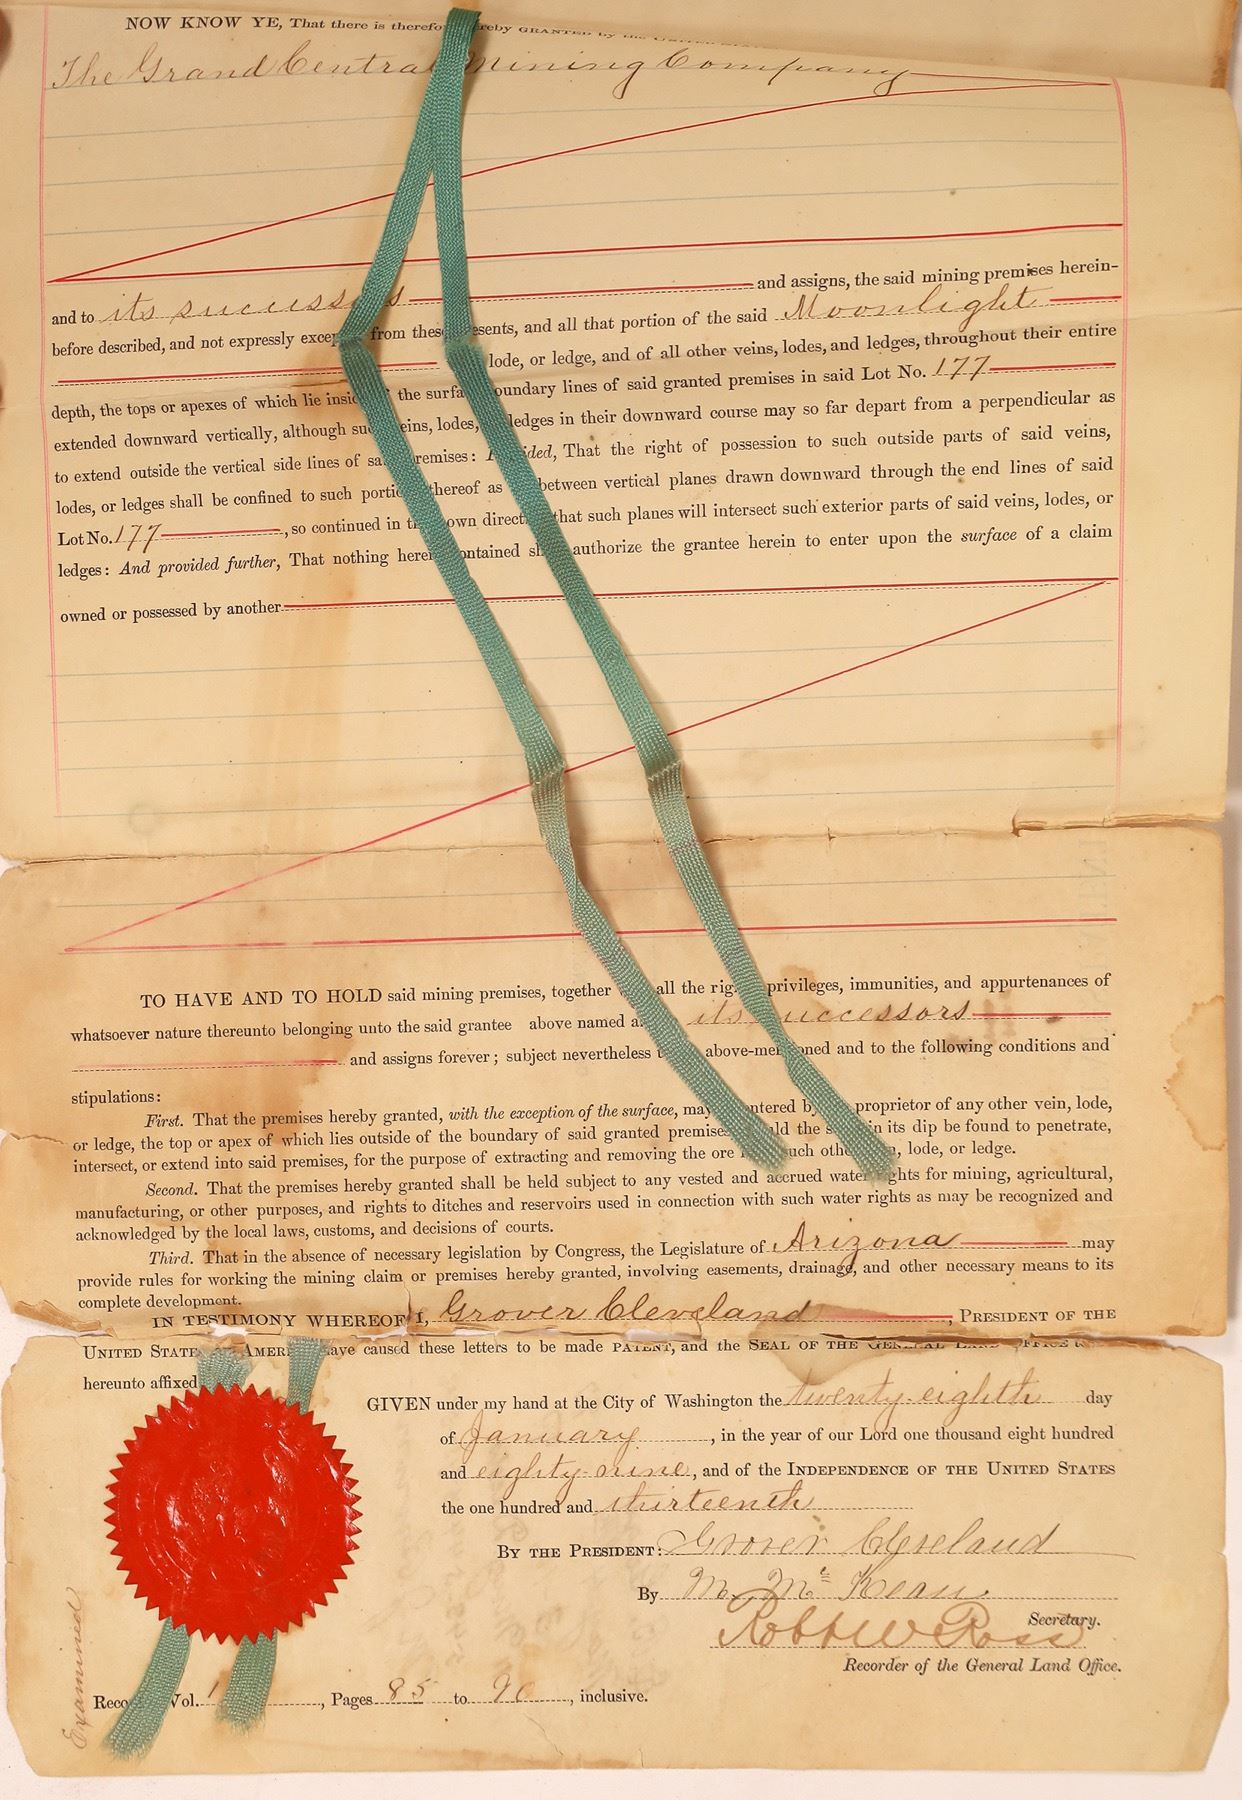 NOW KNOW YE, That there is therefo reby GRANTED by the UNITED
The Grand Central Mining Company
and to its success s and assigns, the said mining premises herein-
before described, and not expressly excep from these esents, and all that portion of the said Moonlight
lode, or ledge, and of all other veins, lodes, and ledges, throughout their entire
depth, the tops or apexes of which lie insid f the surfa oundary lines of said granted premises in said Lot No. 177
extended downward vertically, although suc eins, lodes, ledges in their downward course may so far depart from a perpendicular as
to extend outside the vertical side lines of sa remises: P ided, That the right of possession to such outside parts of said veins,
lodes, or ledges shall be confined to such portio thereof as between vertical planes drawn downward through the end lines of said
Lot No. 177, so continued in t own direct that such planes will intersect such exterior parts of said veins, lodes, or
ledges: And provided further, That nothing herei ontained sh authorize the grantee herein to enter upon the surface of a claim
owned or possessed by another
TO HAVE AND TO HOLD said mining premises, together all the rig privileges, immunities, and appurtenances of
whatsoever nature thereunto belonging unto the said grantee above named a its successors
and assigns forever; subject nevertheless t above-mentioned and to the following conditions and
stipulations:
First. That the premises hereby granted, with the exception of the surface, may ntered by proprietor of any other vein, lode,
or ledge, the top or apex of which lies outside of the boundary of said granted premises ld the s in its dip be found to penetrate,
intersect, or extend into said premises, for the purpose of extracting and removing the ore such othe , lode, or ledge.
Second. That the premises hereby granted shall be held subject to any vested and accrued water rights for mining, agricultural,
manufacturing, or other purposes, and rights to ditches and reservoirs used in connection with such water rights as may be recognized and
acknowledged by the local laws, customs, and decisions of courts.
Third. That in the absence of necessary legislation by Congress, the Legislature of Arizona may
provide rules for working the mining claim or premises hereby granted, involving easements, drainage, and other necessary means to its
complete development.
IN TESTIMONY WHEREOF I, Grover Cleveland, PRESIDENT OF THE
UNITED STATE AMERI have caused these letters to be made PATENT, and the SEAL OF THE GENERAL LAND OFFICE
hereunto affixed
GIVEN under my hand at the City of Washington the twenty-eighth day
of January, in the year of our Lord one thousand eight hundred
and eighty-nine, and of the INDEPENDENCE OF THE UNITED STATES
the one hundred and thirteenth
BY THE PRESIDENT: Grover Cleveland
By M. McKean
Secretary.
Robt W Ross
Recorder of the General Land Office.
Reco Vol. 1, Pages 85 to 90, inclusive.
Examined